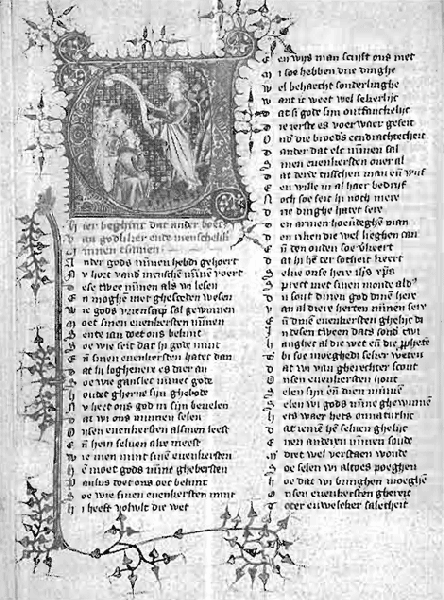 Hier beghint dat ander boec
van godliker ende menscheliker
minnen tsamen
Ander gods minnen hebdi gehoert
Nu hoert vands menschen minne voert
Dese twee minnen als wi lesen
En moghē niet ghesceden wesen
Wie gods vriensap sal gewinnen
Moet sinen euenkersten minnen
Sente ian doet ons bekint
Soe wie seit dat hi gode mint
En̄ sinen euenkersten hatet dan
Dat hi loghenere es daer an
Soe wie minet gode
Houdet gherne sijn ghebode
Nu heet ons god in sijn beuelen
Dat wi ons minnen selen
Onsen euenkersten alsmen leest
En̄ hem seluen alre meest
Wie niet mint sinē euenkersten
Hē moet gods minne ghebersten
Paulus doet ons oec bekint
Soe wie sinen euenkersten mint
Hi heeft voluult die wet
Een wijs man scrijft ons met
Wi soe hebben drie dinghe
Wel behaecht sonderlinghe
Want ic weet wel sekerlijc
Dat si gode sijn
Dierste es voer waer geseit
Ond die broeds eendrachtecheit
Dander dat elc minnen sal
Sinen euenkersten oueral
Dat derde tusschen man en̄ wijf
Een wille in al haer bedrijf
Noch soe seit hi noch mere
Drie dinghe hatet sere
Den armen houerdeghē man
Den riken die wel lieghen can
En̄ den ouden
Dat hi hē ter sotheit keert
Selue ons here
Sprect met sinen monde aldꝰ
Du sout dinen god dinē here
Van al diere herten minnen sere
En̄ dinē euenkersten ghelijc di
In desen tween dats
hanghet al die wet en̄ die ꝓphete
Bi soe moeghedi seker weten
Dat wi van gherechter scout
Onsen euenkersten hout
Selen sijn en̄ dien minnē
Selen wi gods minē ghewinnē
Hets waer hets onnatuerlijc
Dat iemē hē seluen ghelijc
Enen anderen minnen soude
Dit wel verstaen woude
Soe selen wi altoes poeghen
Soe dat wi bringhen moeghē
Onsen euenkerstēn ghereit
Toter euwelcher salecheit